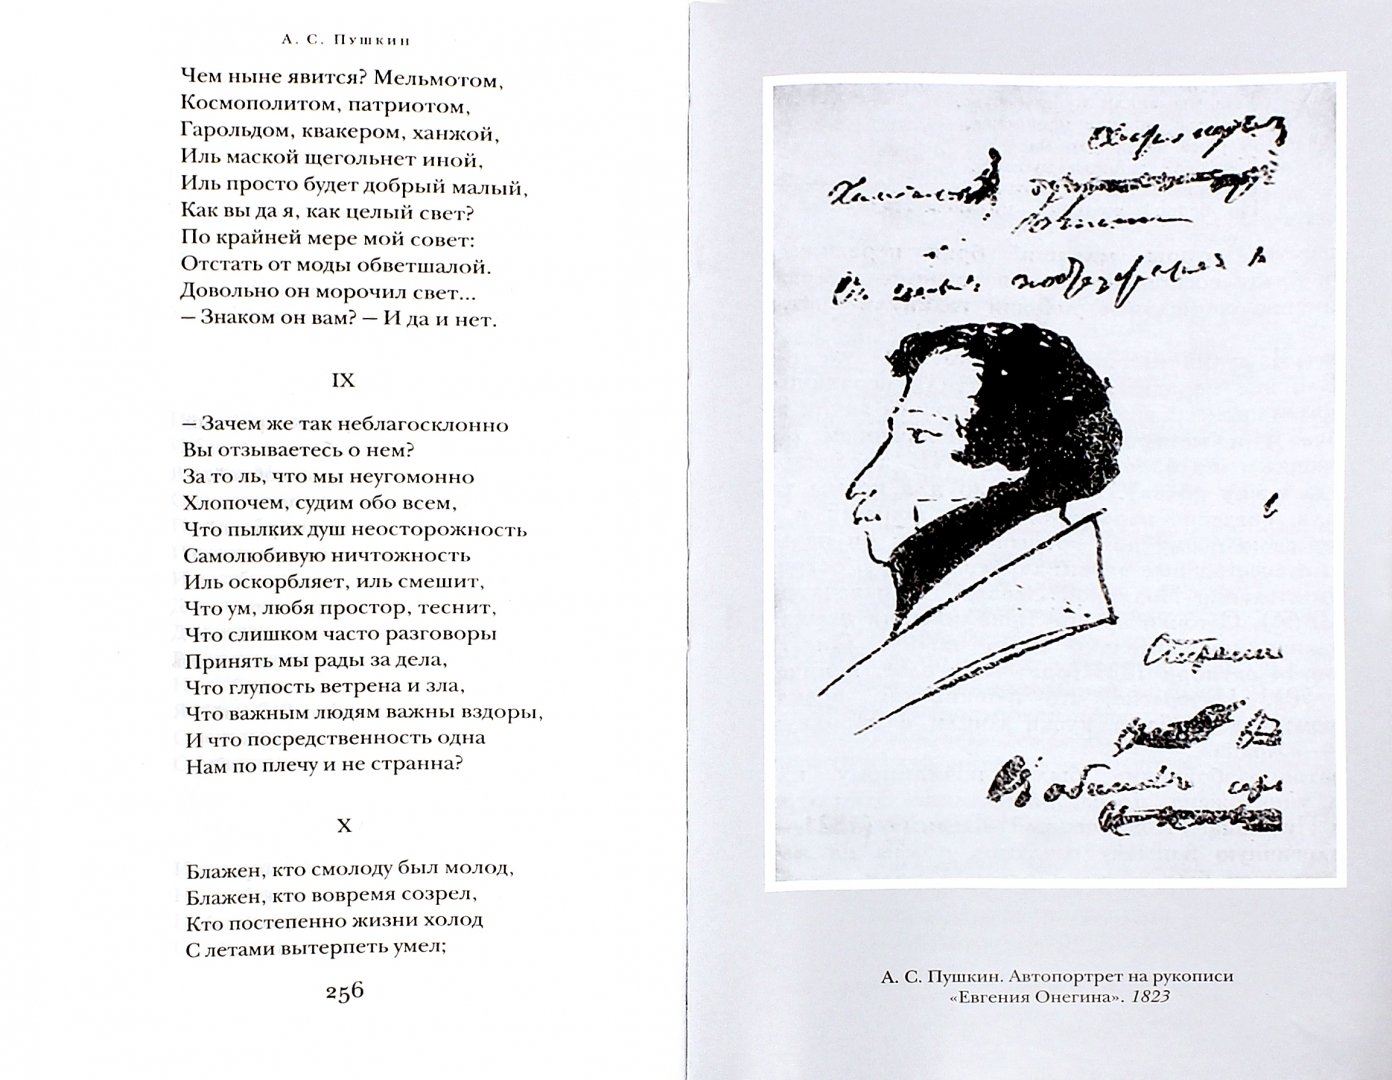 А. С. Пушкин
Чем ныне явится? Мельмотом,
Космополитом, патриотом,
Гарольдом, квакером, ханжой,
Иль маской щегольнет иной,
Иль просто будет добрый малый,
Как вы да я, как целый свет?
По крайней мере мой совет:
Отстать от моды обветшалой.
Довольно он морочил свет...
— Знаком он вам? — И да и нет.
IX
— Зачем же так неблагосклонно
Вы отзываетесь о нем?
За то ль, что мы неугомонно
Хлопочем, судим обо всем,
Что пылких душ неосторожность
Самолюбивую ничтожность
Иль оскорбляет, иль смешит,
Что ум, любя простор, теснит,
Что слишком часто разговоры
Принять мы рады за дела,
Что глупость ветрена и зла,
Что важным людям важны вздоры,
И что посредственность одна
Нам по плечу и не странна?
X
Блажен, кто смолоду был молод,
Блажен, кто вовремя созрел,
Кто постепенно жизни холод
С летами вытерпеть умел;
256
А. С. Пушкин. Автопортрет на рукописи
«Евгения Онегина». 1823